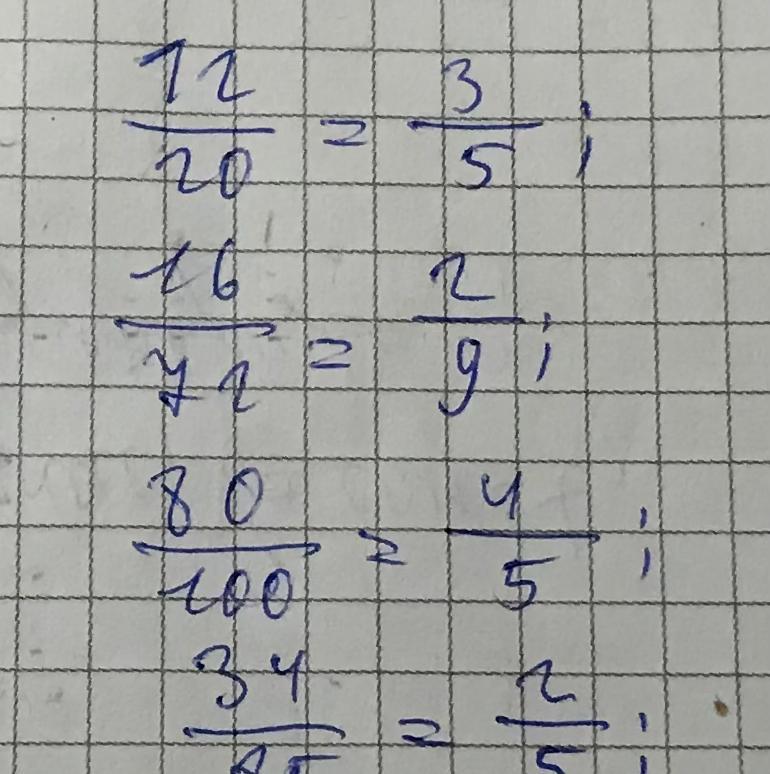 12/20 = 3/5;
16/72 = 2/9;
80/100 = 4/5;
34/85 = 2/5;